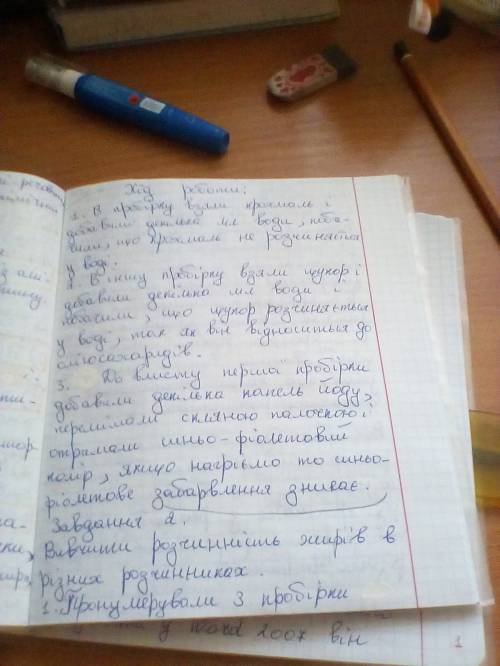 Хід роботи:
1. В пробірку взяли крохмаль і
добавили декілька мл води, поба-
чили, що крохмаль не розчиняється
у воді.
2. В іншу пробірку взяли цукор і
добавили декілька мл води і
побачили, що цукор розчиняється
у воді, так як він відноситься до
олігосахаридів.
3. До вмісту першої пробірки
добавили декілька капель йоду,
перемішали скляною палочкою і
отримали синьо-фіолетовий
колір, якщо нагріємо то синьо-
фіолетове забарвлення зникає.
Завдання 2.
Вивчити розчинність жирів в
різних розчинниках.
1. Пронумерували 3 пробірки
у word 2007 він
1